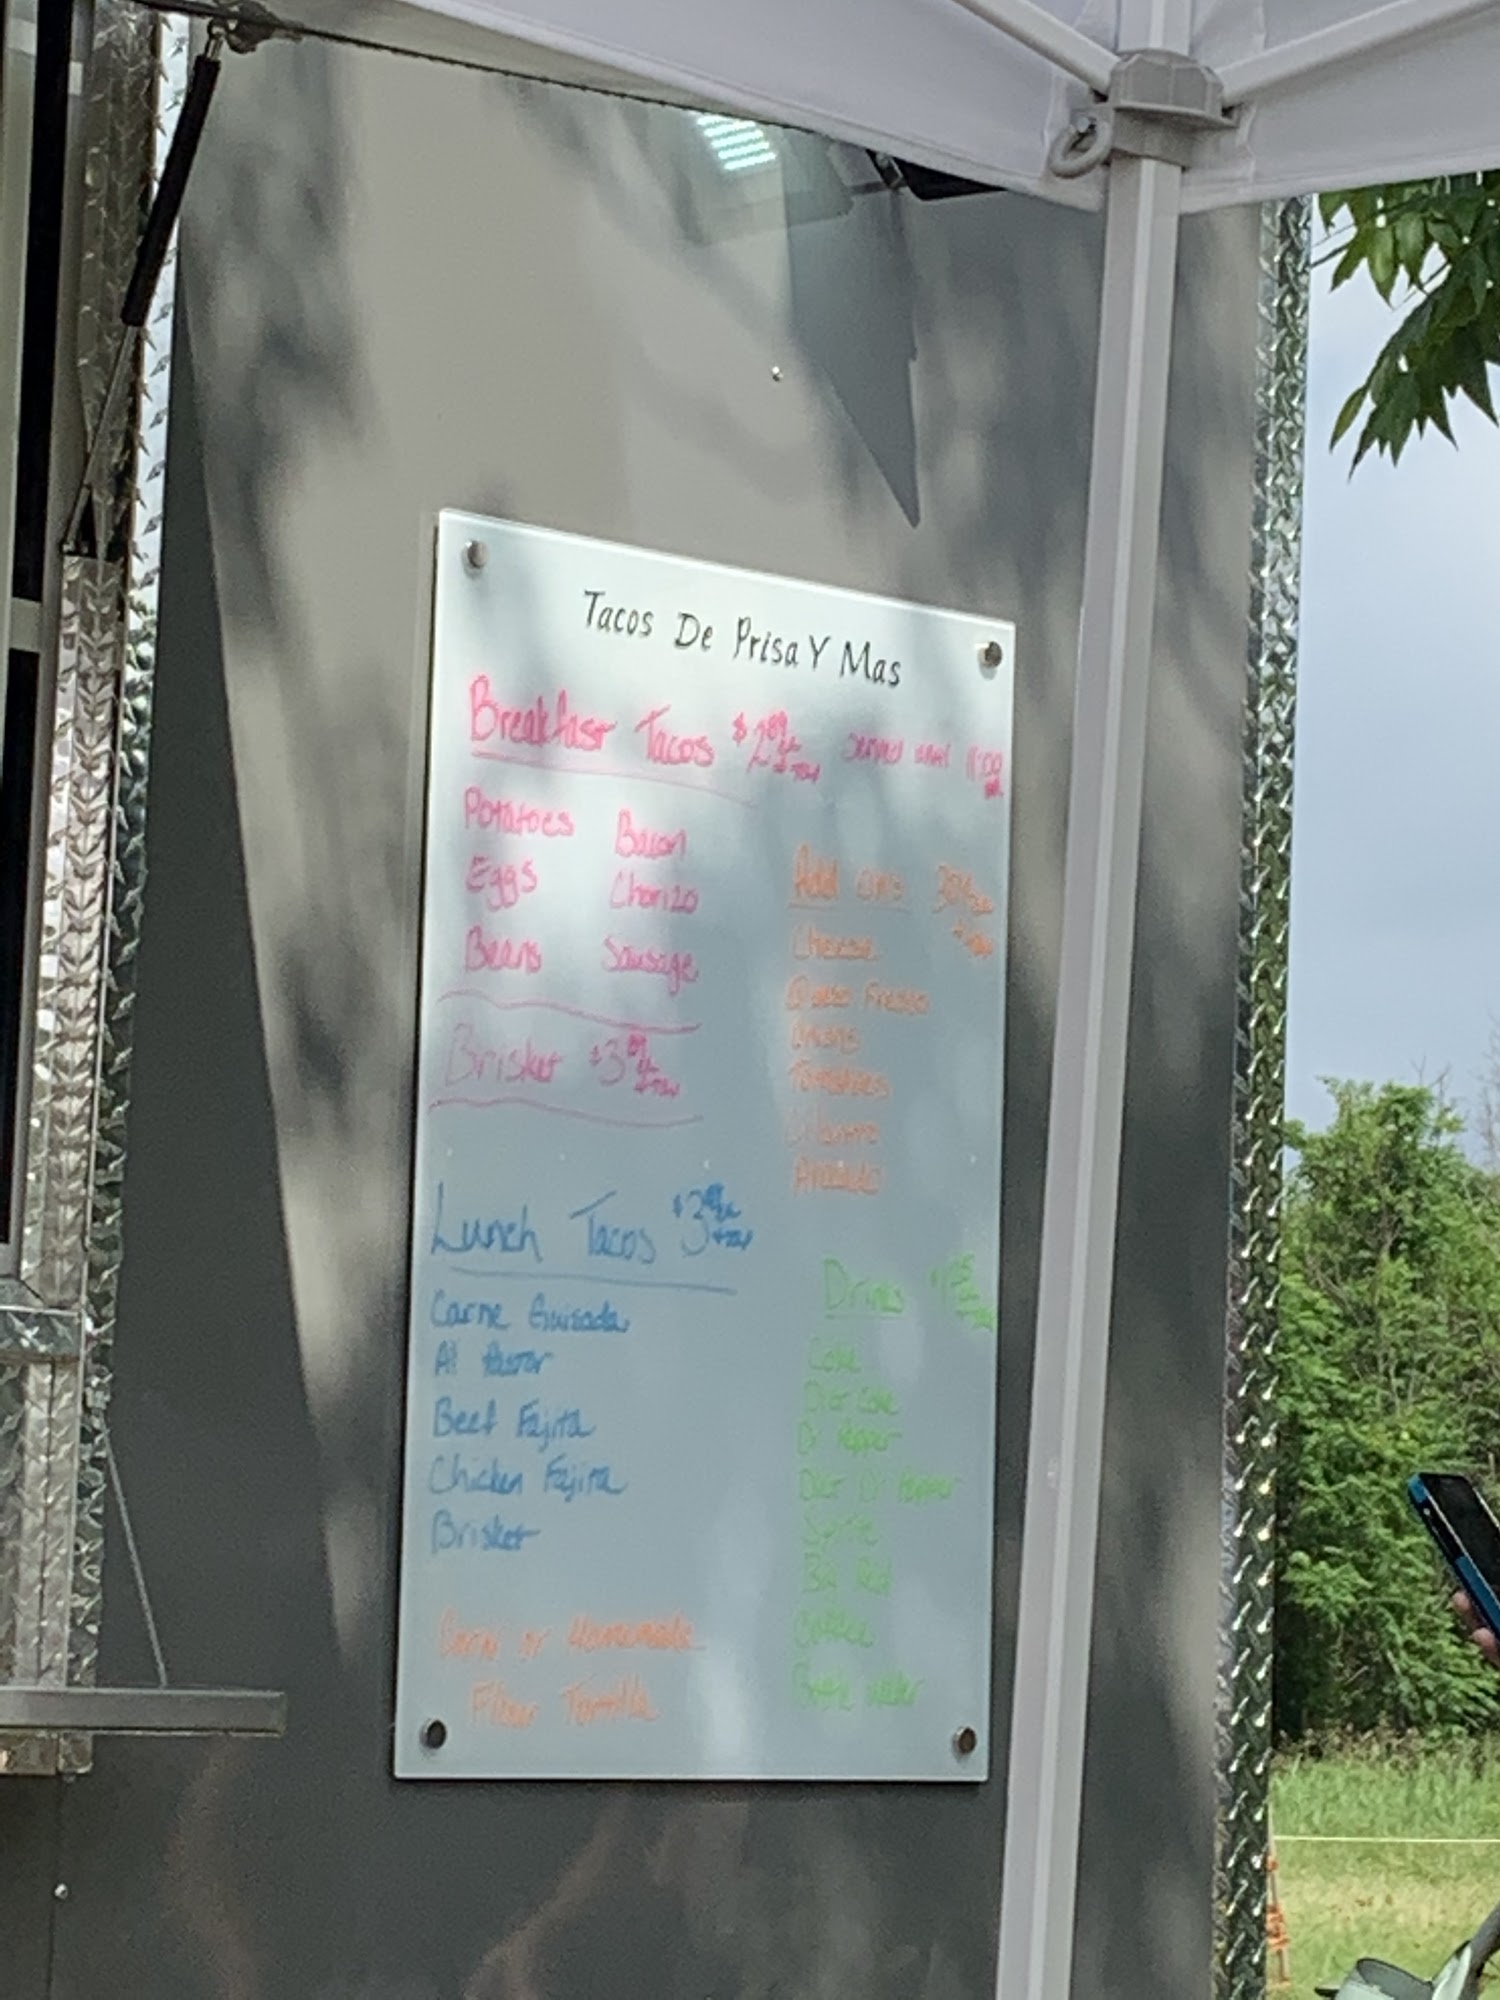 Tacos De Prisa Y Mas
Breakfast Tacos $2.89 ea + tax served until 11:00
Potatoes Bacon
Eggs Chorizo
Beans Sausage
Brisket $3.89 ea + tax
Add ons
Cheese
Queso Fresco
Onions
Tomatoes
Cilantro
Avocado
Lunch Tacos $3 ea + tax
Carne Guisada
Al Pastor
Beef Fajita
Chicken Fajita
Brisket
Corn or Homemade
Flour Tortilla
Drinks
Coke
Diet Coke
Dr Pepper
Diet Dr Pepper
Sprite
Big Red
Coffee
Bottle water